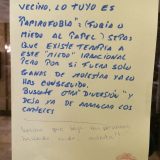 VECINO, LO TUYO ES
"PAPIROFOBIA" : (FOBIA O
MIEDO AL PAPEL) SEPAS
QUE EXISTE TERAPIA A
ESTE "MIEDO" IRRACIONAL
PERO POR SI FUERA SOLO
GANAS DE MOLESTAR YA LO
HAS CONSEGUIDO.
BUSCATE OTRA "DIVERSIÓN" Y
DEJA YA DE ARRANCAR LOS
CARTELES
que hay